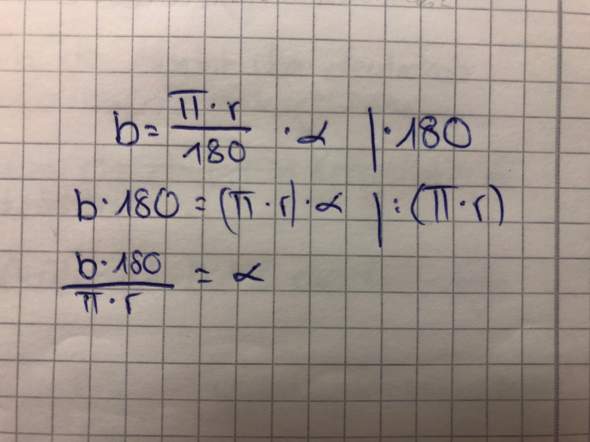 b = π · r / 180 · α | · 180
b · 180 = (π · r) · α | : (π · r)
b · 180 / π · r = α